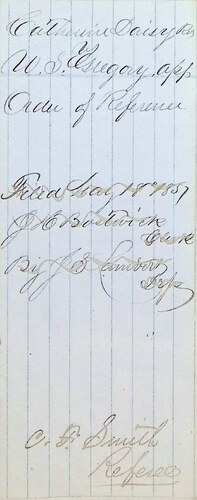 Catherine Daisy Res
W. S. Gregory app
Order of Reference
Filed May 18th 1857
J C Bostwick
Clerk
By J S Lambert
Dep
O. F. Smith
Referee